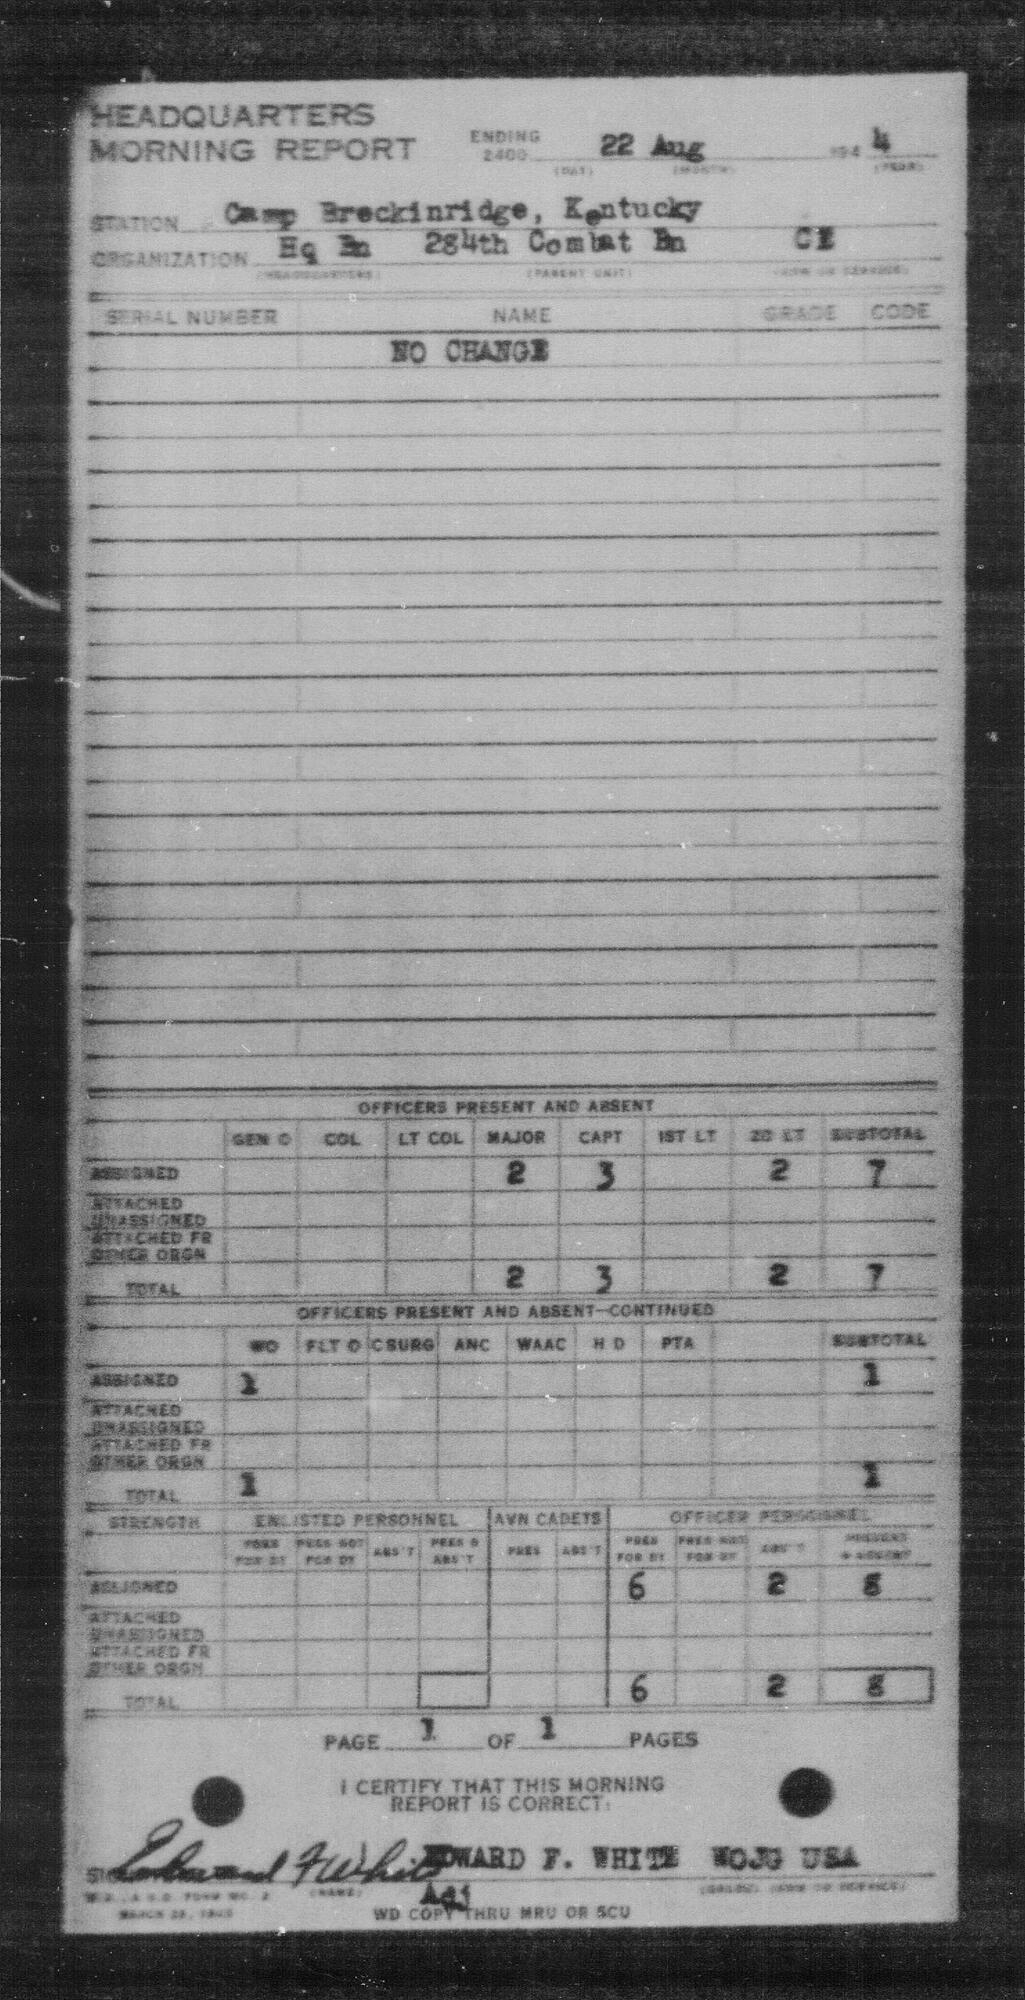 HEADQUARTERS
MORNING REPORT ENDING 2400 22 Aug 194 4
(DAY) (MONTH) (YEAR)
STATION Camp Breckinridge, Kentucky
ORGANIZATION Hq Bn 284th Combat Bn CE
(HEADQUARTERS) (PARENT UNIT) (ARM OR SERVICE)
SERIAL NUMBER NAME GRADE CODE
NO CHANGE
OFFICERS PRESENT AND ABSENT
GEN O COL LT COL MAJOR CAPT 1ST LT 2D LT SUBTOTAL
ASSIGNED 2 3 2 7
ATTACHED UNASSIGNED
ATTACHED FR OTHER ORGN
TOTAL 2 3 2 7
OFFICERS PRESENT AND ABSENT—CONTINUED
WO FLT O C SURG ANC WAAC H D PTA SUBTOTAL
ASSIGNED 1 1
ATTACHED UNASSIGNED
ATTACHED FR OTHER ORGN
TOTAL 1 1
STRENGTH ENLISTED PERSONNEL AVN CADETS OFFICER PERSONNEL
PRES FOR DY PRES NOT FOR DY ABS'T PRES & ABS'T PRES ABS'T PRES FOR DY PRES NOT FOR DY ABS'T PRESENT & ABSENT
ASSIGNED 6 2 8
ATTACHED UNASSIGNED
ATTACHED FR OTHER ORGN
TOTAL 6 2 8
PAGE 1 OF 1 PAGES
I CERTIFY THAT THIS MORNING
REPORT IS CORRECT:
Edward F White EDWARD F. WHITE WOJG USA
(NAME) (GRADE) (ARM OR SERVICE)
W.D., A.G.O. FORM NO. 2 Adj
MARCH WD COPY THRU MRU OR SCU